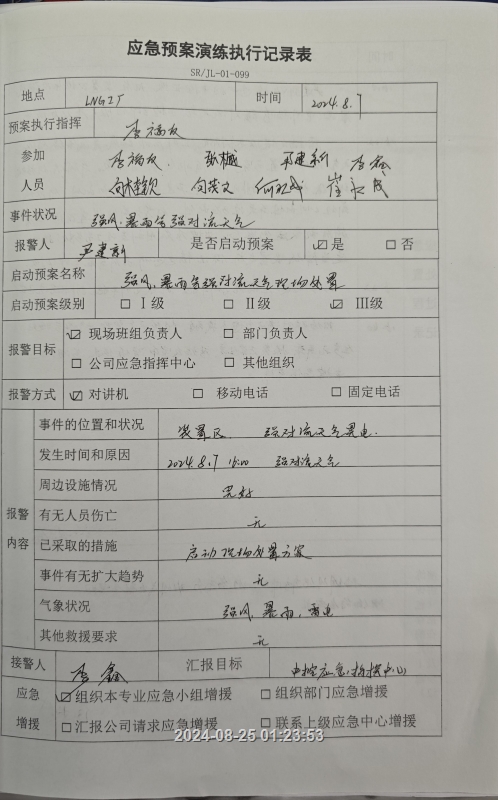 应急预案演练执行记录表
SR/JL-01-099
地点 LNG工厂 时间 2024.8.7
预案执行指挥 李福友
参加 李福友 张樾 尹建新 李鑫
人员
事件状况 强风、暴雨等强对流天气
报警人 尹建新 是否启动预案 ☑是 □否
启动预案名称 强风、暴雨等强对流天气现场处置
启动预案级别 □Ⅰ级 □Ⅱ级 ☑Ⅲ级
报警目标 ☑现场班组负责人 □部门负责人
□公司应急指挥中心 □其他组织
报警方式 ☑对讲机 □移动电话 □固定电话
报警内容
事件的位置和状况 装置区 强对流天气
发生时间和原因 2024.8.7 强对流天气
周边设施情况 完好
有无人员伤亡 无
已采取的措施 启动现场处置方案
事件有无扩大趋势 无
气象状况 强风、暴雨、雷电
其他救援要求 无
接警人 李鑫 汇报目标 中控应急指挥中心
应急 ☑组织本专业应急小组增援 □组织部门应急增援
增援 □汇报公司请求应急增援 □联系上级应急中心增援
2024-08-25 01:23:53